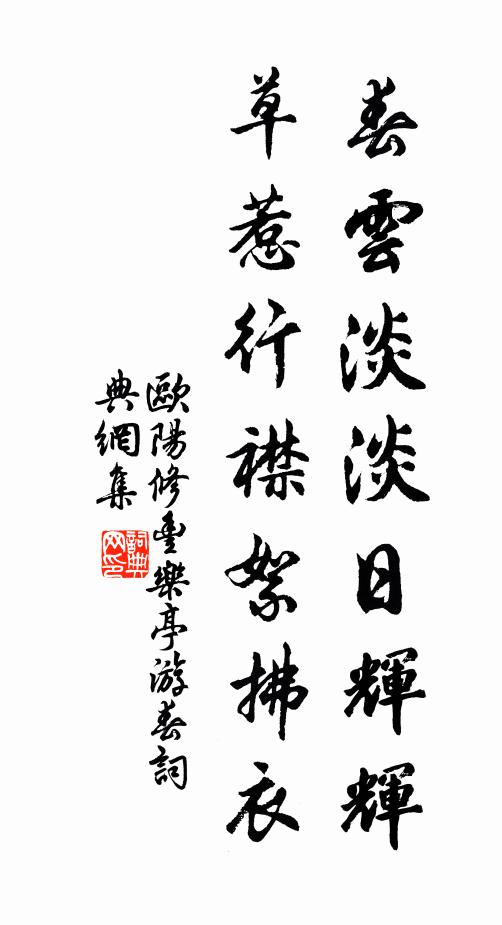 春雲淡淡日輝輝
草惹行襟絮拂衣
歐陽修豐樂亭游春詞
典網集
詞典网印